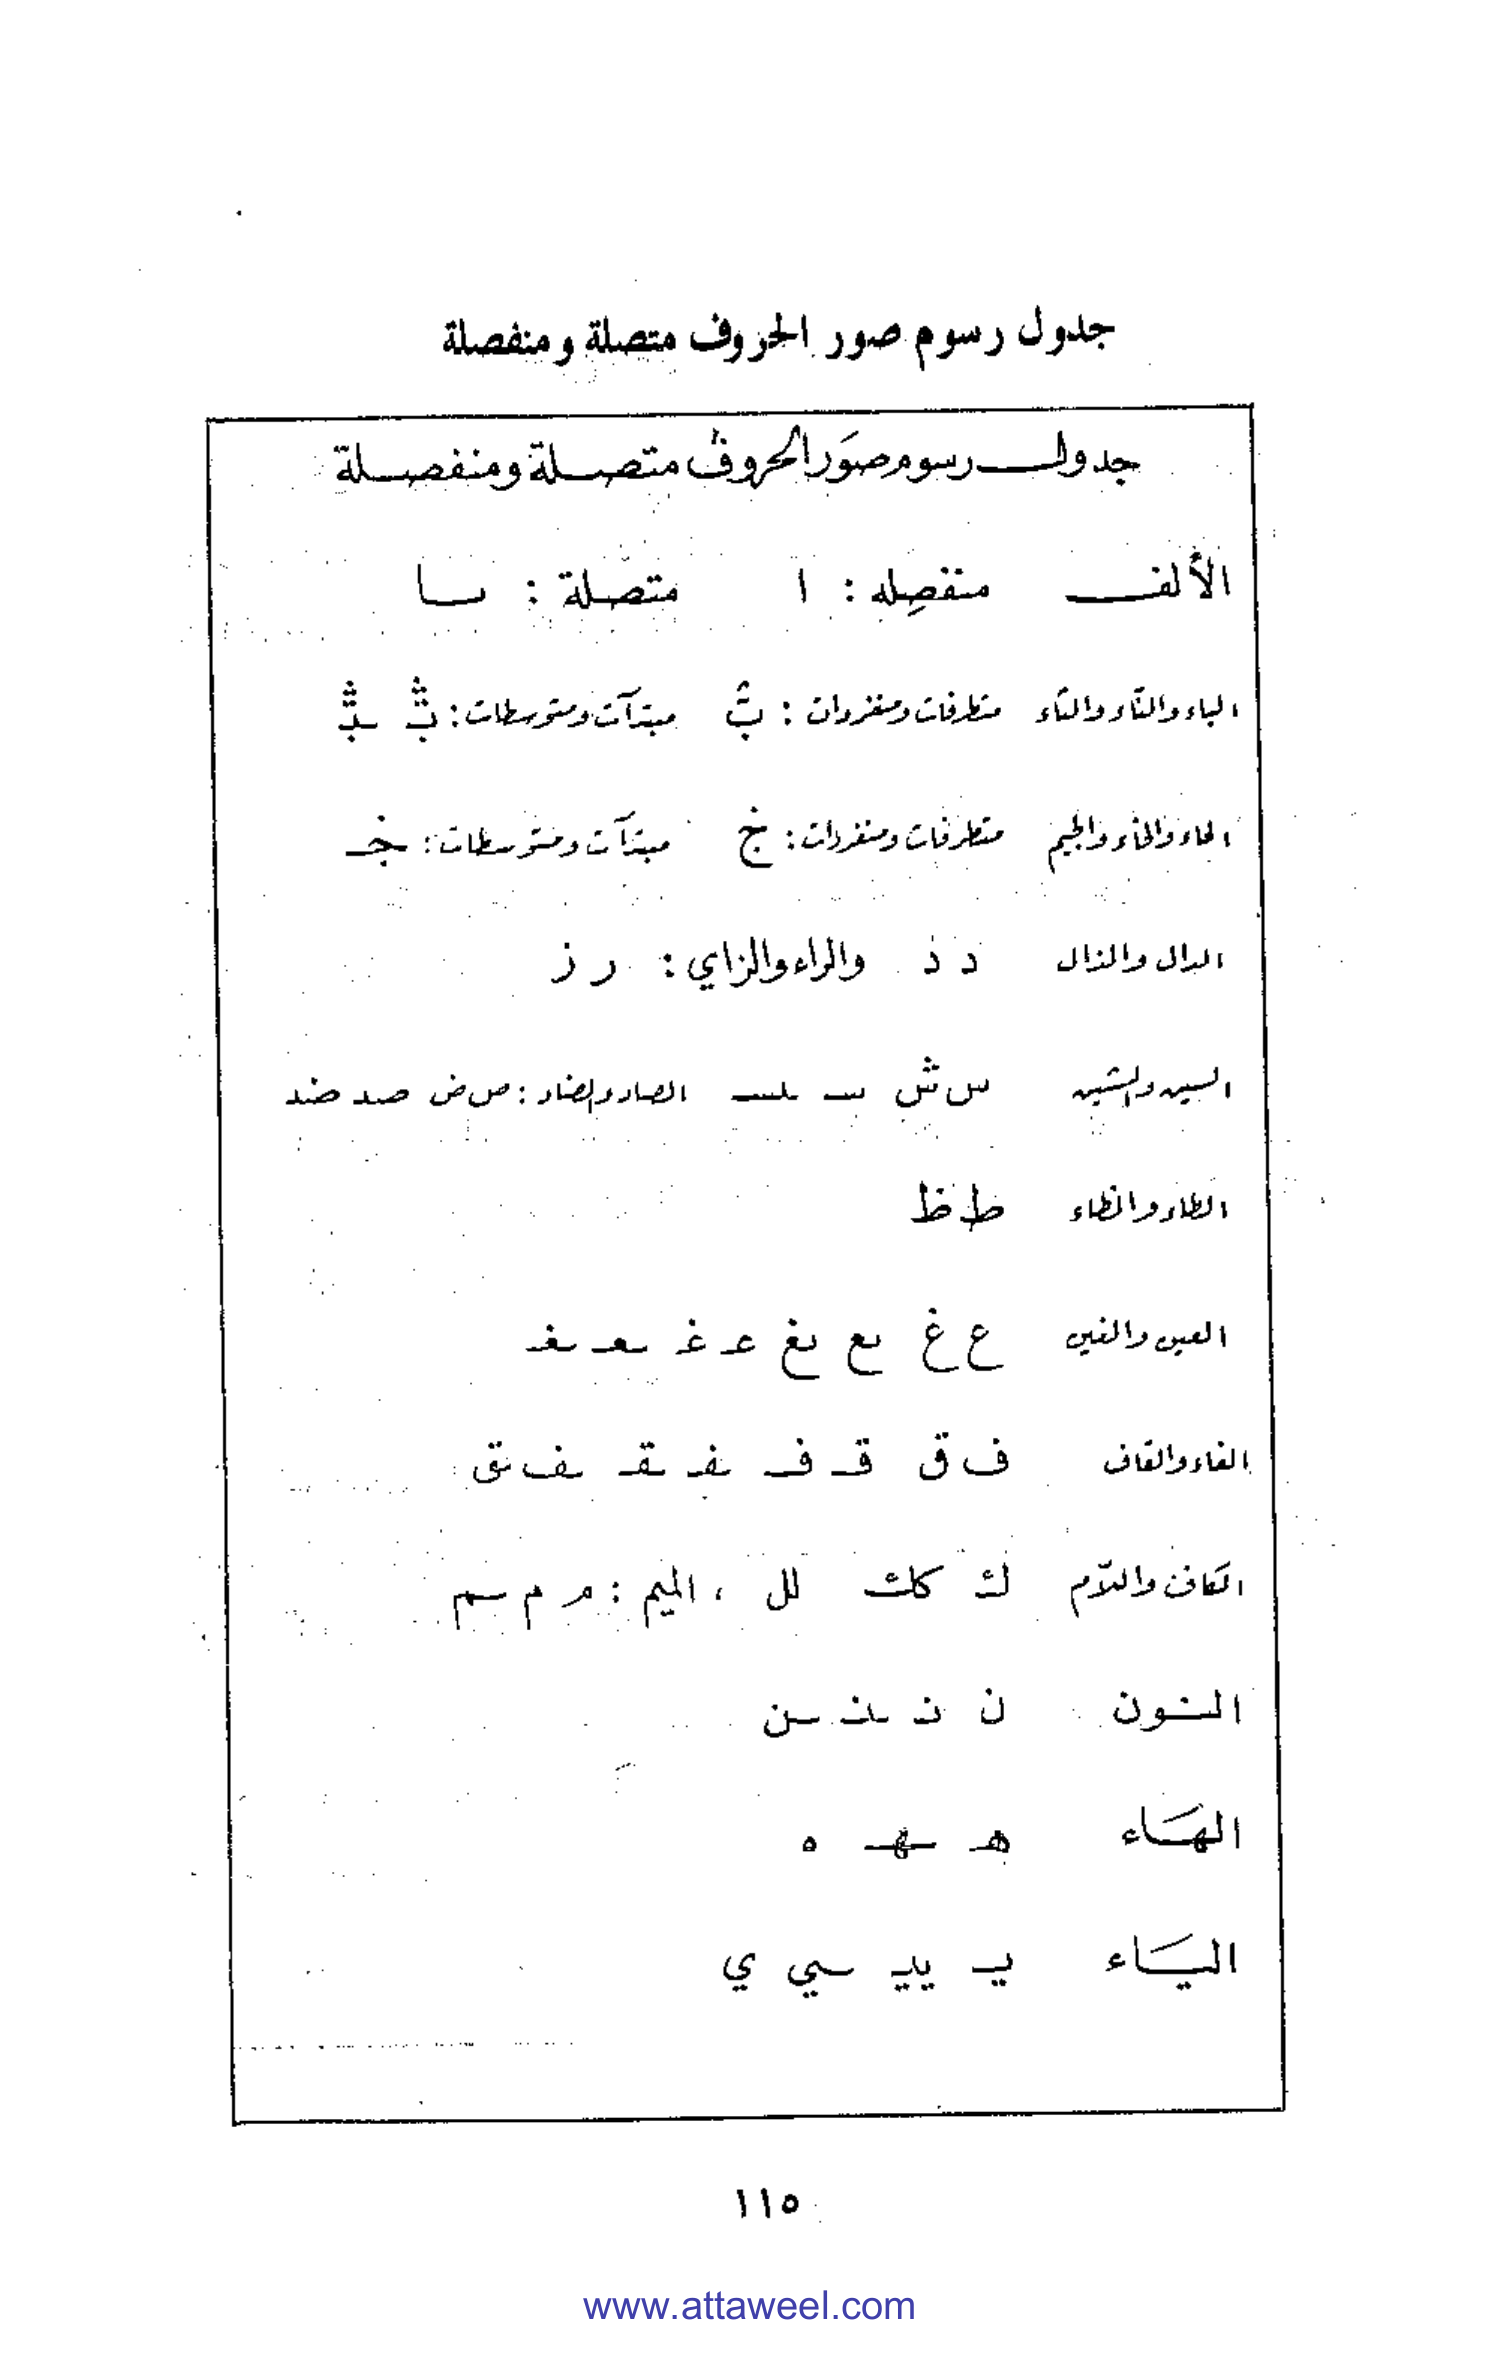 جدول رسوم صور الحروف متصلة ومنفصلة
جدول رسوم صَور الحروف متصلة ومنفصلة
الألف منفصِله : ا متصّلة : ـا
الباء والتّاء والثاء متطرفات ومنفردات : مبتدآت ومتوسطات :
الحاء والخاء والجيم متطرفات ومنفردات : مبتدآت ومتوسطات :
الدال والذال د ذ والراء والزاي : ر ز
السين والشين س ش سـ ـسـ الصاد والضاد : ص ض صد ضد
الطاء والظاء ط ظ
العين والغين ع غ ـع ـغ عـ غـ ـعـ ـغـ
الفاء والقاف ف ق قـ فـ ـفـ ـقـ ـف ـق
الكاف واللاّم ك كك لل ، الميم : مـ م ـم
النون ن نـ ـنـ ـن
الهَاء هـ ـهـ ه
اليَاء يـ ـيـ ـي ي
١١٥
www.attaweel.com